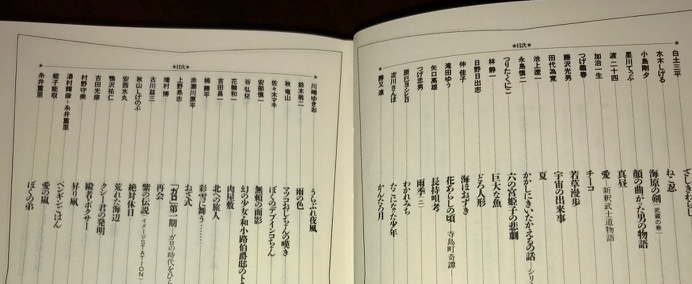 *目次*
白土三平
水木しげる
ねこ忍
小島剛夕
海原の剣
星川てっぷ
顔の曲った男の物語
真昼
渡二十四
愛—新釈武士道物語
加治一生
チーコ
つげ義春
若草漫歩
藤沢光男
宇宙の出来事
田代為寛
夏
池上遼一
永島慎二
かかしにきいたかえるの話
つりたくにこ
六の宮姫子の悲劇
林静一
巨大な魚
日野日出志
どろ人形
仲佳子
海ほおずき
滝田ゆう
花あらしの頃
寺島町奇譚
矢口高雄
長持唄考
つげ忠男
雨季(二)
辰巳ヨシヒロ
わかれみち
淀川さんぽ
たこになった少年
勝又進
かんたろ月
*目次*
川崎ゆきお
うらぶれ夜風
鈴木翁二
雨の色
秋竜山
マッコおじちゃんの嘆き
佐々木マキ
ぼくのデブインコちゃん
安部慎一
無頼の面影
谷弘兒
幻の少女・和小路伯爵邸の
花輪和一
肉屋敷
吉田昌一
北への旅人
楠勝平
彩雪に舞う……
赤瀬川原平
おざ式
上野昂志
「ガロ」第一期
ガロの時代をひ
増村博
再会
古川益三
紫の伝説
イメージSTATION
秋山しげのぶ
絶対休日
安西水丸
荒れた海辺
鴨沢祐仁
クシー君の発明
吉田光彦
村野守美
昇り凧
湯村輝彦＋糸井重里
ペンギンごはん
蛭子能収
愛の嵐
糸井重里
ぼくの弟